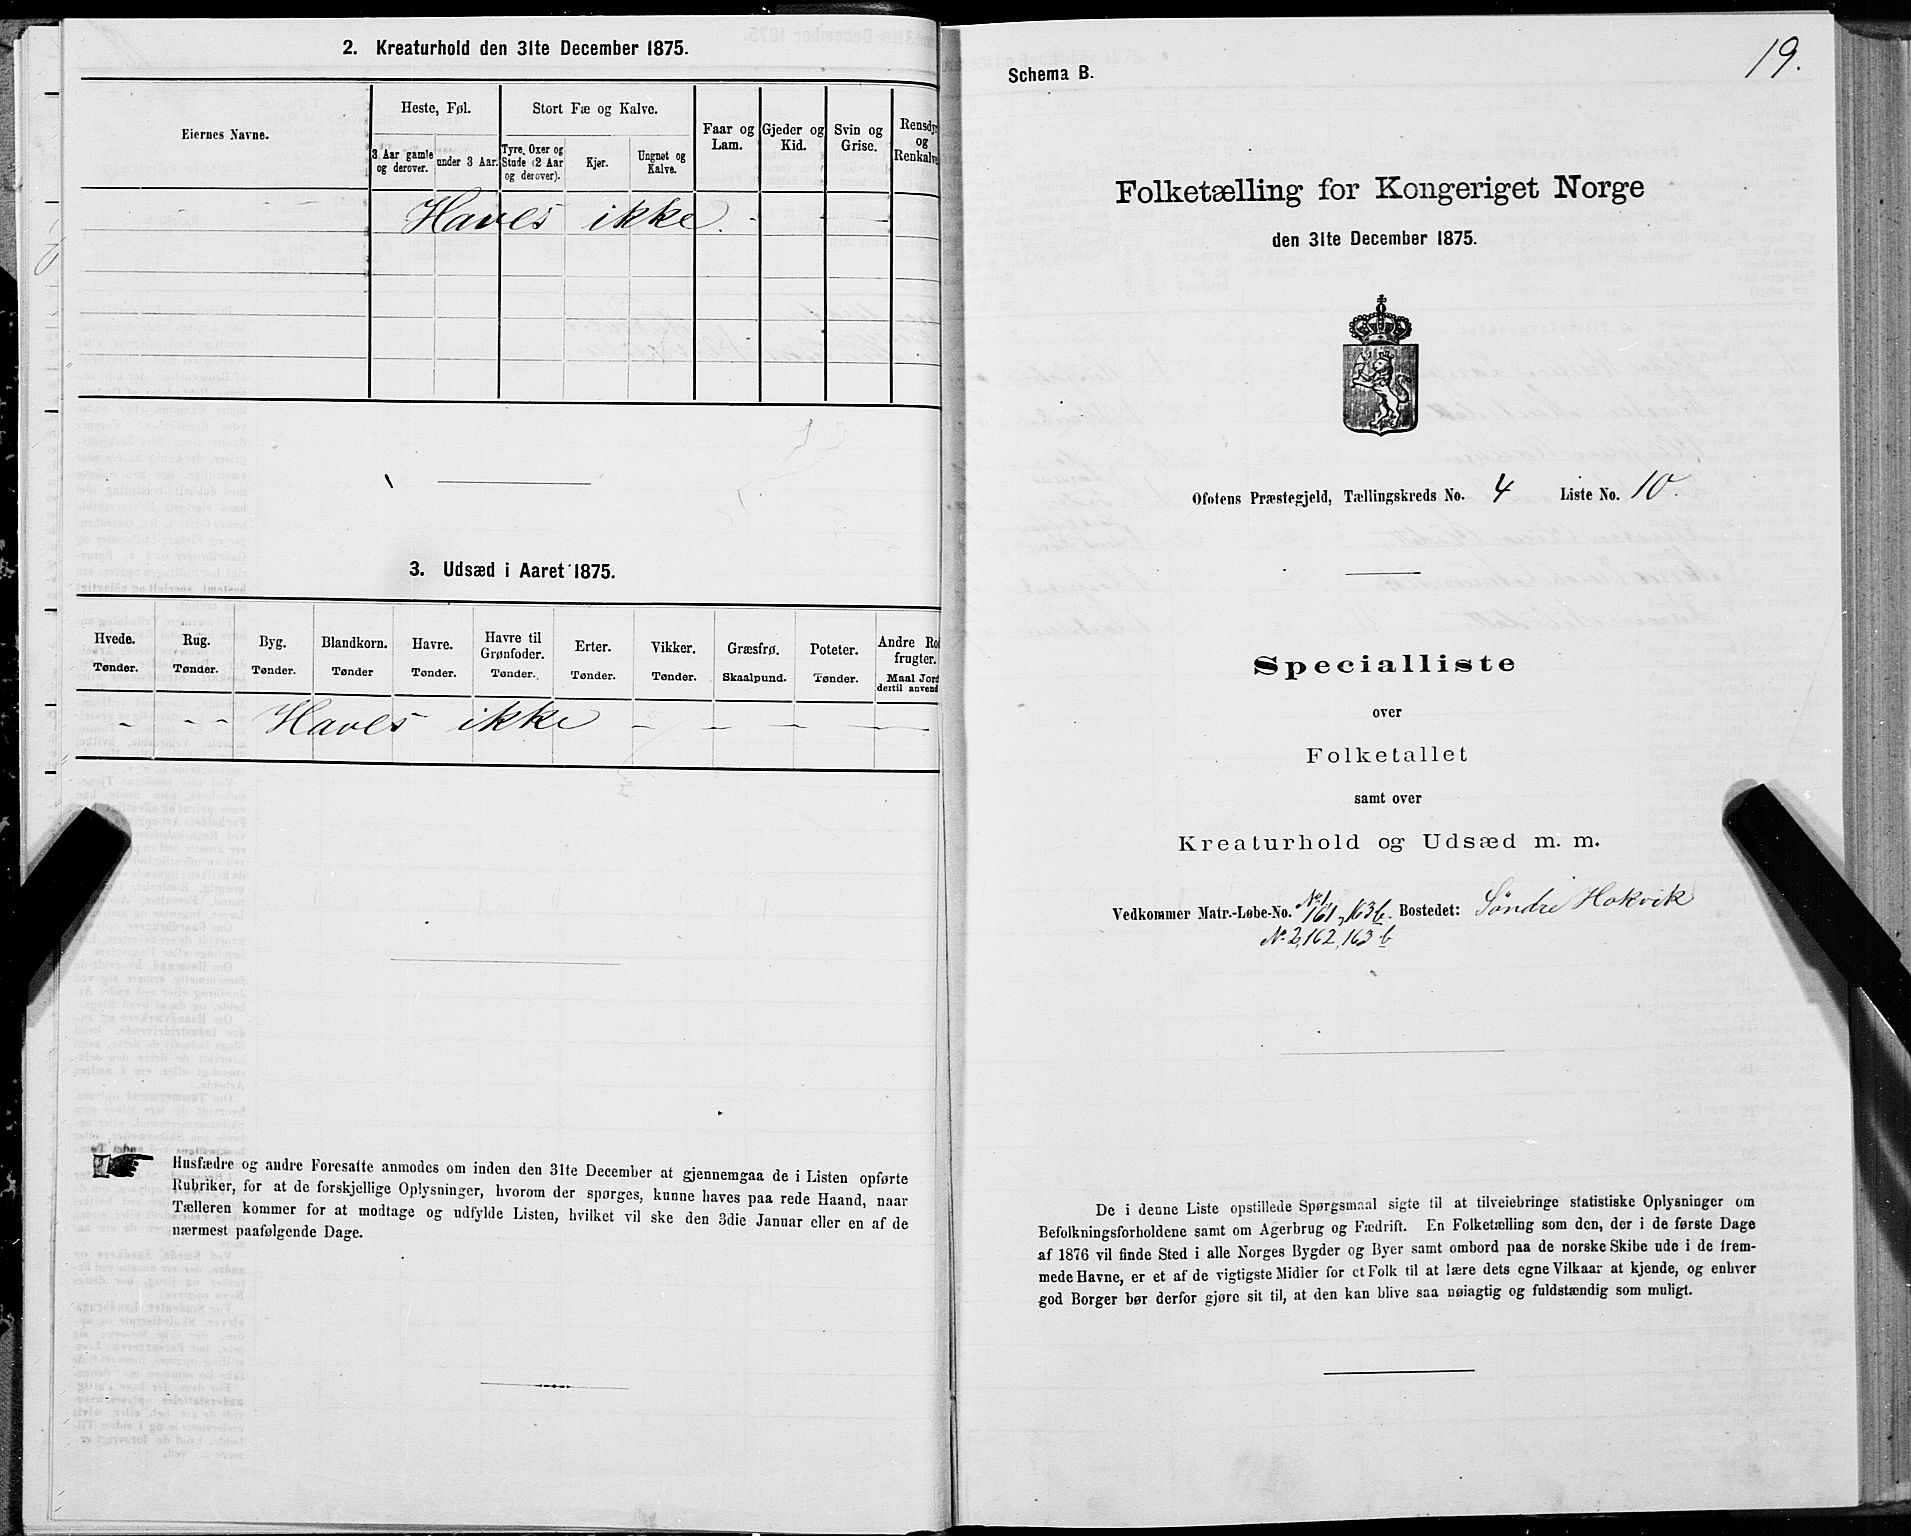 2. Kreaturhold den 31te December 1875.
Eiernes Navne.
Heste, Føl.
3 Aar gamle og derover.
under 3 Aar.
Stort Fæ og Kalve.
Tyre, Oxer og Stude (2 Aar og derover).
Kjør.
Ungnøt og Kalve.
Faar og Lam.
Gjeder og Kid.
Svin og Grise.
Rensdyr og Renkalve
Haves ikke.
3. Udsæd i Aaret 1875.
Hvede. Tønder.
Rug. Tønder.
Byg. Tønder.
Blandkorn. Tønder
Havre. Tønder.
Havre til Grønfoder. Tønder.
Erter. Tønder.
Vikker. Tønder.
Græsfrø. Skaalpund.
Poteter. Tønder.
Andre Rod frugter. Maal Jord dertil anvend
- - - Haves ikke - - - -
Husfædre og andre Foresatte anmodes om inden den 31te December at gjennemgaa de i Listen opførte
Rubriker, for at de forskjellige Oplysninger, hvorom der spørges, kunne haves paa rede Haand, naar
Tælleren kommer for at modtage og udfylde Listen, hvilket vil ske den 3die Januar eller en af de
nærmest paafølgende Dage.
19.
Schema B.
Folketælling for Kongeriget Norge
den 31te December 1875.
Ofotens Præstegjeld, Tællingskreds No. 4 Liste No. 10.
Specialliste
over
Folketallet
samt over
Kreaturhold og Udsæd m. m.
Vedkommer Matr.-Løbe-No. No. 1, 161, 163b. Bostedet: Söndre Hokvik
No. 2, 162, 163 b
De i denne Liste opstillede Spørgsmaal sigte til at tilveiebringe statistiske Oplysninger om
Befolkningsforholdene samt om Agerbrug og Fædrift. En Folketælling som den, der i de første Dage
af 1876 vil finde Sted i alle Norges Bygder og Byer samt ombord paa de norske Skibe ude i de frem-
mede Havne, er et af de vigtigste Midler for et Folk til at lære dets egne Vilkaar at kjende, og enhver
god Borger bør derfor gjøre sit til, at den kan blive saa nøiagtig og fuldstændig som muligt.